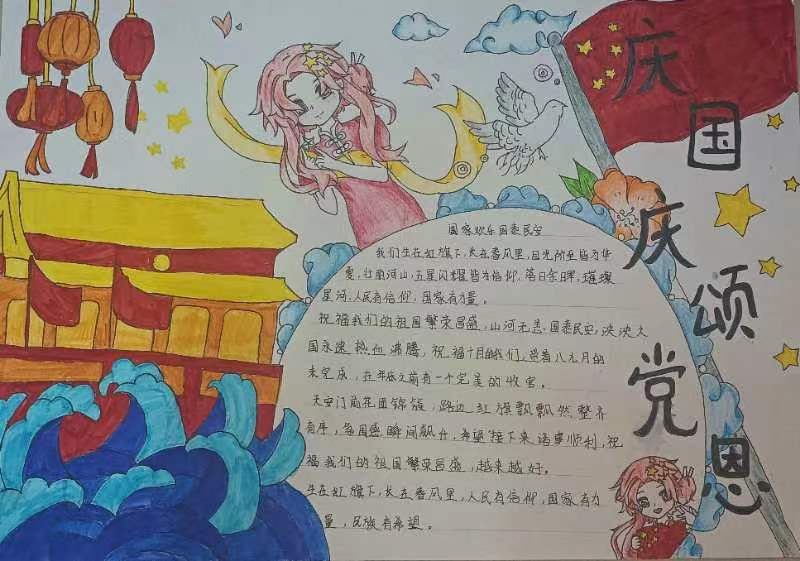 庆国庆颂党恩
国家欢乐国泰民安
我们生在红旗下,长在春风里,目光所至皆为华
夏,壮丽河山,五星闪耀皆为信仰,落日余晖,璀璨
星河,人民有信仰,国家有力量。
祝福我们的祖国繁荣昌盛,山河无恙,国泰民安,泱泱大
国永远热血沸腾,祝福十月的我们,趁着八九月的
未完成,在年底之前有一个完美的收官。
天安门前花团锦簇,路边红旗飘飘然整齐
有序,每国感瞬间飙升,希望接下来诸事顺利,祝
福我们的祖国繁荣昌盛,越来越好。
生在红旗下,长在春风里,人民有信仰,国家有力
量,民族有希望。